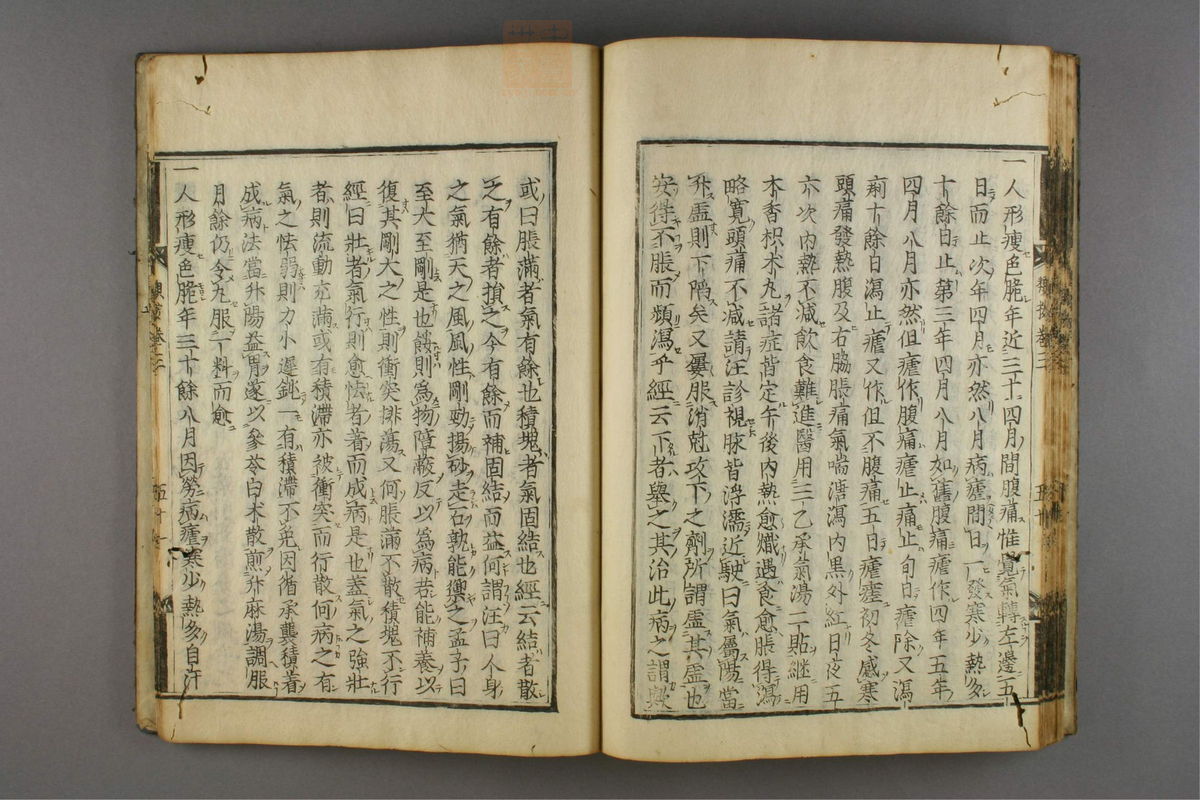 一人形瘦色脆年近三十四月間腹痛惟覺氣轉左邊五
日而止次年四月亦然八月病瘧間日一發寒少熱多
十餘日止第三年四月八月如舊腹痛瘧作四年五年
四月八月亦然但瘧作腹痛瘧止痛止旬日瘧除又瀉
痢十餘日瀉止瘧又作但不腹痛五日瘧瘥初冬感寒
頭痛發熱腹及右脇脹痛氣喘溏瀉內黑外紅日夜五
六次內熱不減飲食難進醫用三乙承氣湯二貼継用
木香枳朮丸諸症皆定午後內熱愈熾遇食愈脹得瀉
略寬頭痛不減請汪診視脉皆浮濡近駛曰氣屬陽當
升虛則下陷矣又屢服消尅攻下之劑所謂虛其虛也
安得不脹而頻瀉乎經云下者舉之其治此病之謂歟
或曰脹滿者氣有餘也積塊者氣固結也經云結者散
之有餘者損之今有餘而補固結而益何謂汪曰人身
之氣猶天之風風性剛勁揚砂走石孰能禦之孟子曰
至大至剛是也餒則爲物障蔽反以爲病若能補養以
復其剛大之性則衝突排蕩又何脹滿不散積塊不行
經曰壯者氣行則愈怯者著而成病是也蓋氣之強壯
者則流動充滿或有積滯亦被衝突而行散何病之有
氣之怯弱則力小遲鈍一有積滯不免因循承襲積著
成病法當升陽益胃遂以參苓白朮散煎升麻湯調服
月餘仍令丸服一料而愈
一人形瘦色脆年三十餘八月因勞病瘧寒少熱多自汗